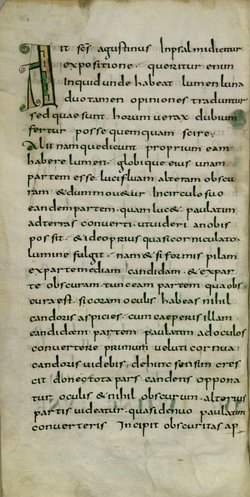 Ait scs agustinus Inpsalmi dicitur
expositione. queritur enim
Inquid unde habeat lumen luna
duo tamen opiniones traduntur
sed quae sunt horum uerax dubium
fertur posse quemquam scire;
Alii namque dicunt proprium eam
habere lumen. globique eius unam
partem esse lucifluam alteram obscu
ram & dum mouetur Incirculo suo
eandem partem. qua luc& paulatim
ad terras conuerti. ut uideri a nobis
possit. & ideo prius quasi corniculato
lumine fulgit. nam & si formis pilam
ex parte mediam candidam. & ex par
te obscuram tunc eam partem qua obs
cura est. si coram oculis habeas nihil
candoris aspicies. cum caeperis illam
candidam partem paulatim ad oculos
conuertere primum ueluti cornua
candoris uidebis, dehinc sensim cres
cit donec tota pars candens oppona
tur oculis & nihil obscurum alterius
partis uideatur. quasi denuo paulatim
conuerteris Incipit obscuritas ap